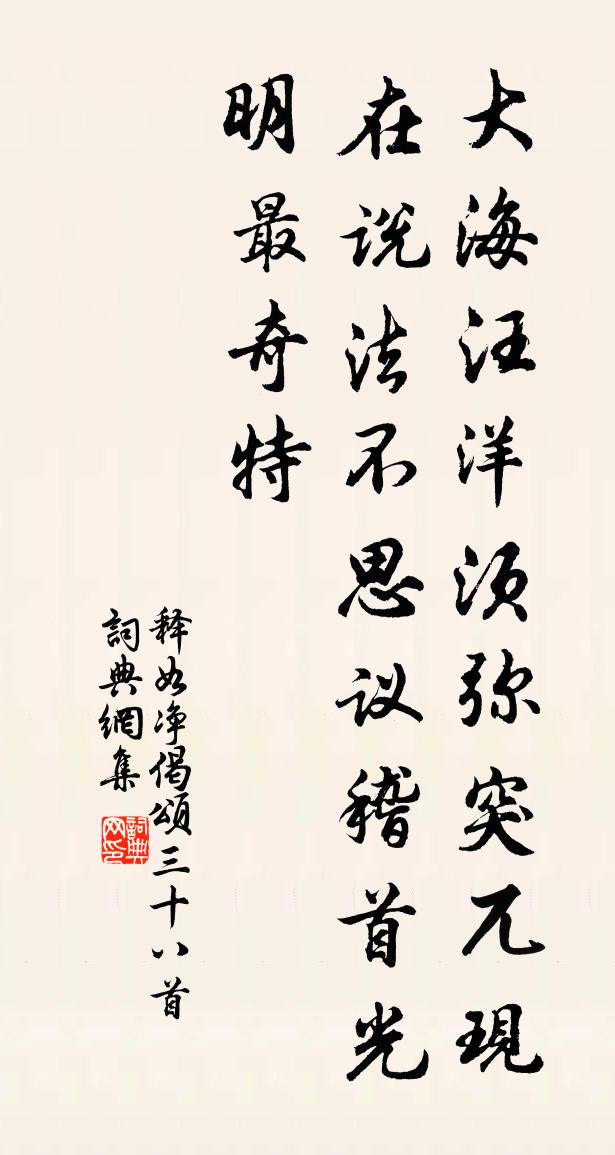 大海汪洋须弥突兀現
在说法不思议稽首光
明最奇特
释如净偈颂三十八首
詞典網集
詞典网印